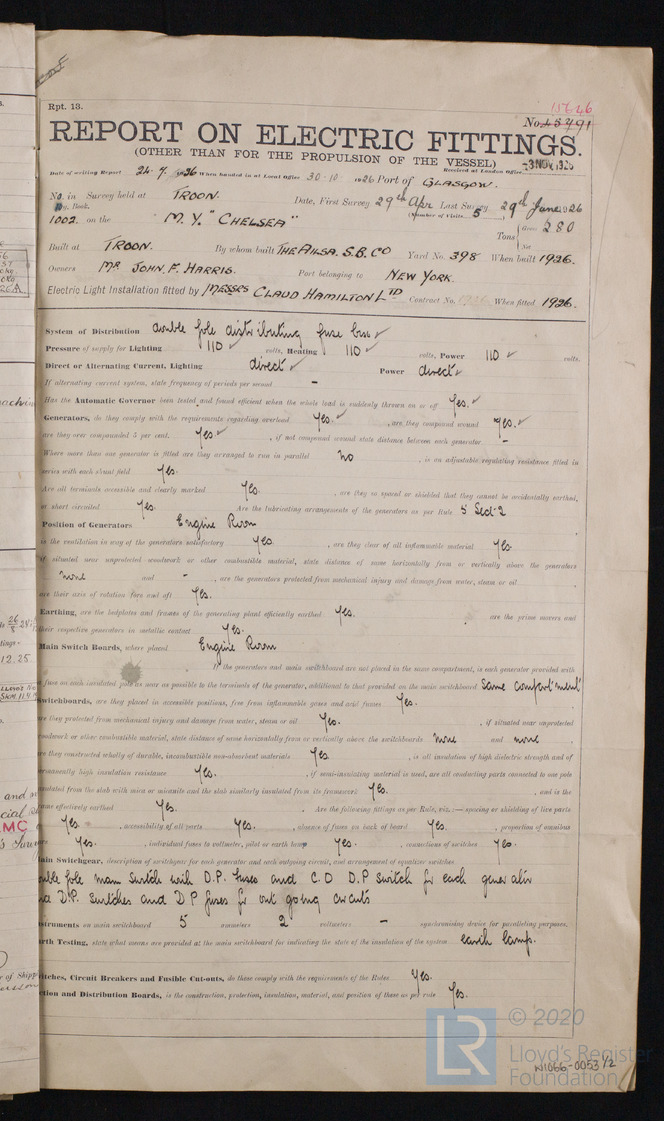 Rpt. 13.
15626
No. 45791
REPORT ON ELECTRIC FITTINGS.
(OTHER THAN FOR THE PROPULSION OF THE VESSEL)
-3 NOV 1926
Date of writing Report 24. 7. 1926 When handed in at Local Office 30.10. 1926 Port of GLASGOW. Received at London Office
No. in Survey held at TROON. Date, First Survey 29th Apr Last Survey 29th June 1926
Reg. Book. (Number of Visits 5
1002. on the M.Y. "CHELSEA" Tons { Gross 280
Net
Built at TROON. By whom built THE AILSA. S.B. CO Yard No. 398 When built 1926.
Owners MR JOHN. F. HARRIS. Port belonging to NEW YORK.
Electric Light Installation fitted by MESSRS CLAUD HAMILTON LTD Contract No. When fitted 1926.
System of Distribution double pole distributing fuse box
Pressure of supply for Lighting 110 volts, Heating 110 volts, Power 110 volts.
Direct or Alternating Current, Lighting direct Power direct
If alternating current system, state frequency of periods per second -
Has the Automatic Governor been tested and found efficient when the whole load is suddenly thrown on or off Yes.
Generators, do they comply with the requirements regarding overload Yes. , are they compound wound Yes.
are they over compounded 5 per cent. Yes , if not compound wound state distance between each generator -
Where more than one generator is fitted are they arranged to run in parallel no , is an adjustable regulating resistance fitted in
series with each shunt field Yes.
Are all terminals accessible and clearly marked Yes. , are they so spaced or shielded that they cannot be accidentally earthed,
or short circuited Yes. Are the lubricating arrangements of the generators as per Rule 5 Sect. 2
Position of Generators Engine Room
is the ventilation in way of the generators satisfactory Yes. , are they clear of all inflammable material Yes.
if situated near unprotected woodwork or other combustible material, state distance of same horizontally from or vertically above the generators
none and - , are the generators protected from mechanical injury and damage from water, steam or oil
are their axis of rotation fore and aft Yes.
Earthing, are the bedplates and frames of the generating plant efficiently earthed Yes. are the prime movers and
their respective generators in metallic contact Yes.
Main Switch Boards, where placed Engine Room
If the generators and main switchboard are not placed in the same compartment, is each generator provided with
a fuse on each insulated pole as near as possible to the terminals of the generator, additional to that provided on the main switchboard Same compartment
Switchboards, are they placed in accessible positions, free from inflammable gases and acid fumes Yes.
are they protected from mechanical injury and damage from water, steam or oil Yes. , if situated near unprotected
woodwork or other combustible material, state distance of same horizontally from or vertically above the switchboards none and none
are they constructed wholly of durable, incombustible non-absorbent materials Yes. , is all insulation of high dielectric strength and of
permanently high insulation resistance Yes. , if semi-insulating material is used, are all conducting parts connected to one pole
insulated from the slab with mica or micanite and the slab similarly insulated from its framework Yes. , and is the
frame effectively earthed Yes. Are the following fittings as per Rule, viz.:— spacing or shielding of live parts
Yes. , accessibility of all parts Yes. , absence of fuses on back of board Yes. , proportion of omnibus
bars Yes. , individual fuses to voltmeter, pilot or earth lamp Yes. , connections of switches Yes.
Main Switchgear, description of switchgear for each generator and each outgoing circuit, and arrangement of equaliser switches
double pole main switch with D.P. fuses and C.O D.P switch for each generator
and D.P. switches and D P fuses for out going circuits
Instruments on main switchboard 5 ammeters 2 voltmeters - synchronising device for paralleling purposes.
Earth Testing, state what means are provided at the main switchboard for indicating the state of the insulation of the system earth lamps.
Switches, Circuit Breakers and Fusible Cut-outs, do these comply with the requirements of the Rules Yes.
Section and Distribution Boards, is the construction, protection, insulation, material, and position of these as per rule Yes.
LR
© 2020
Lloyd's Register
Foundation
W1066-0053 1/2